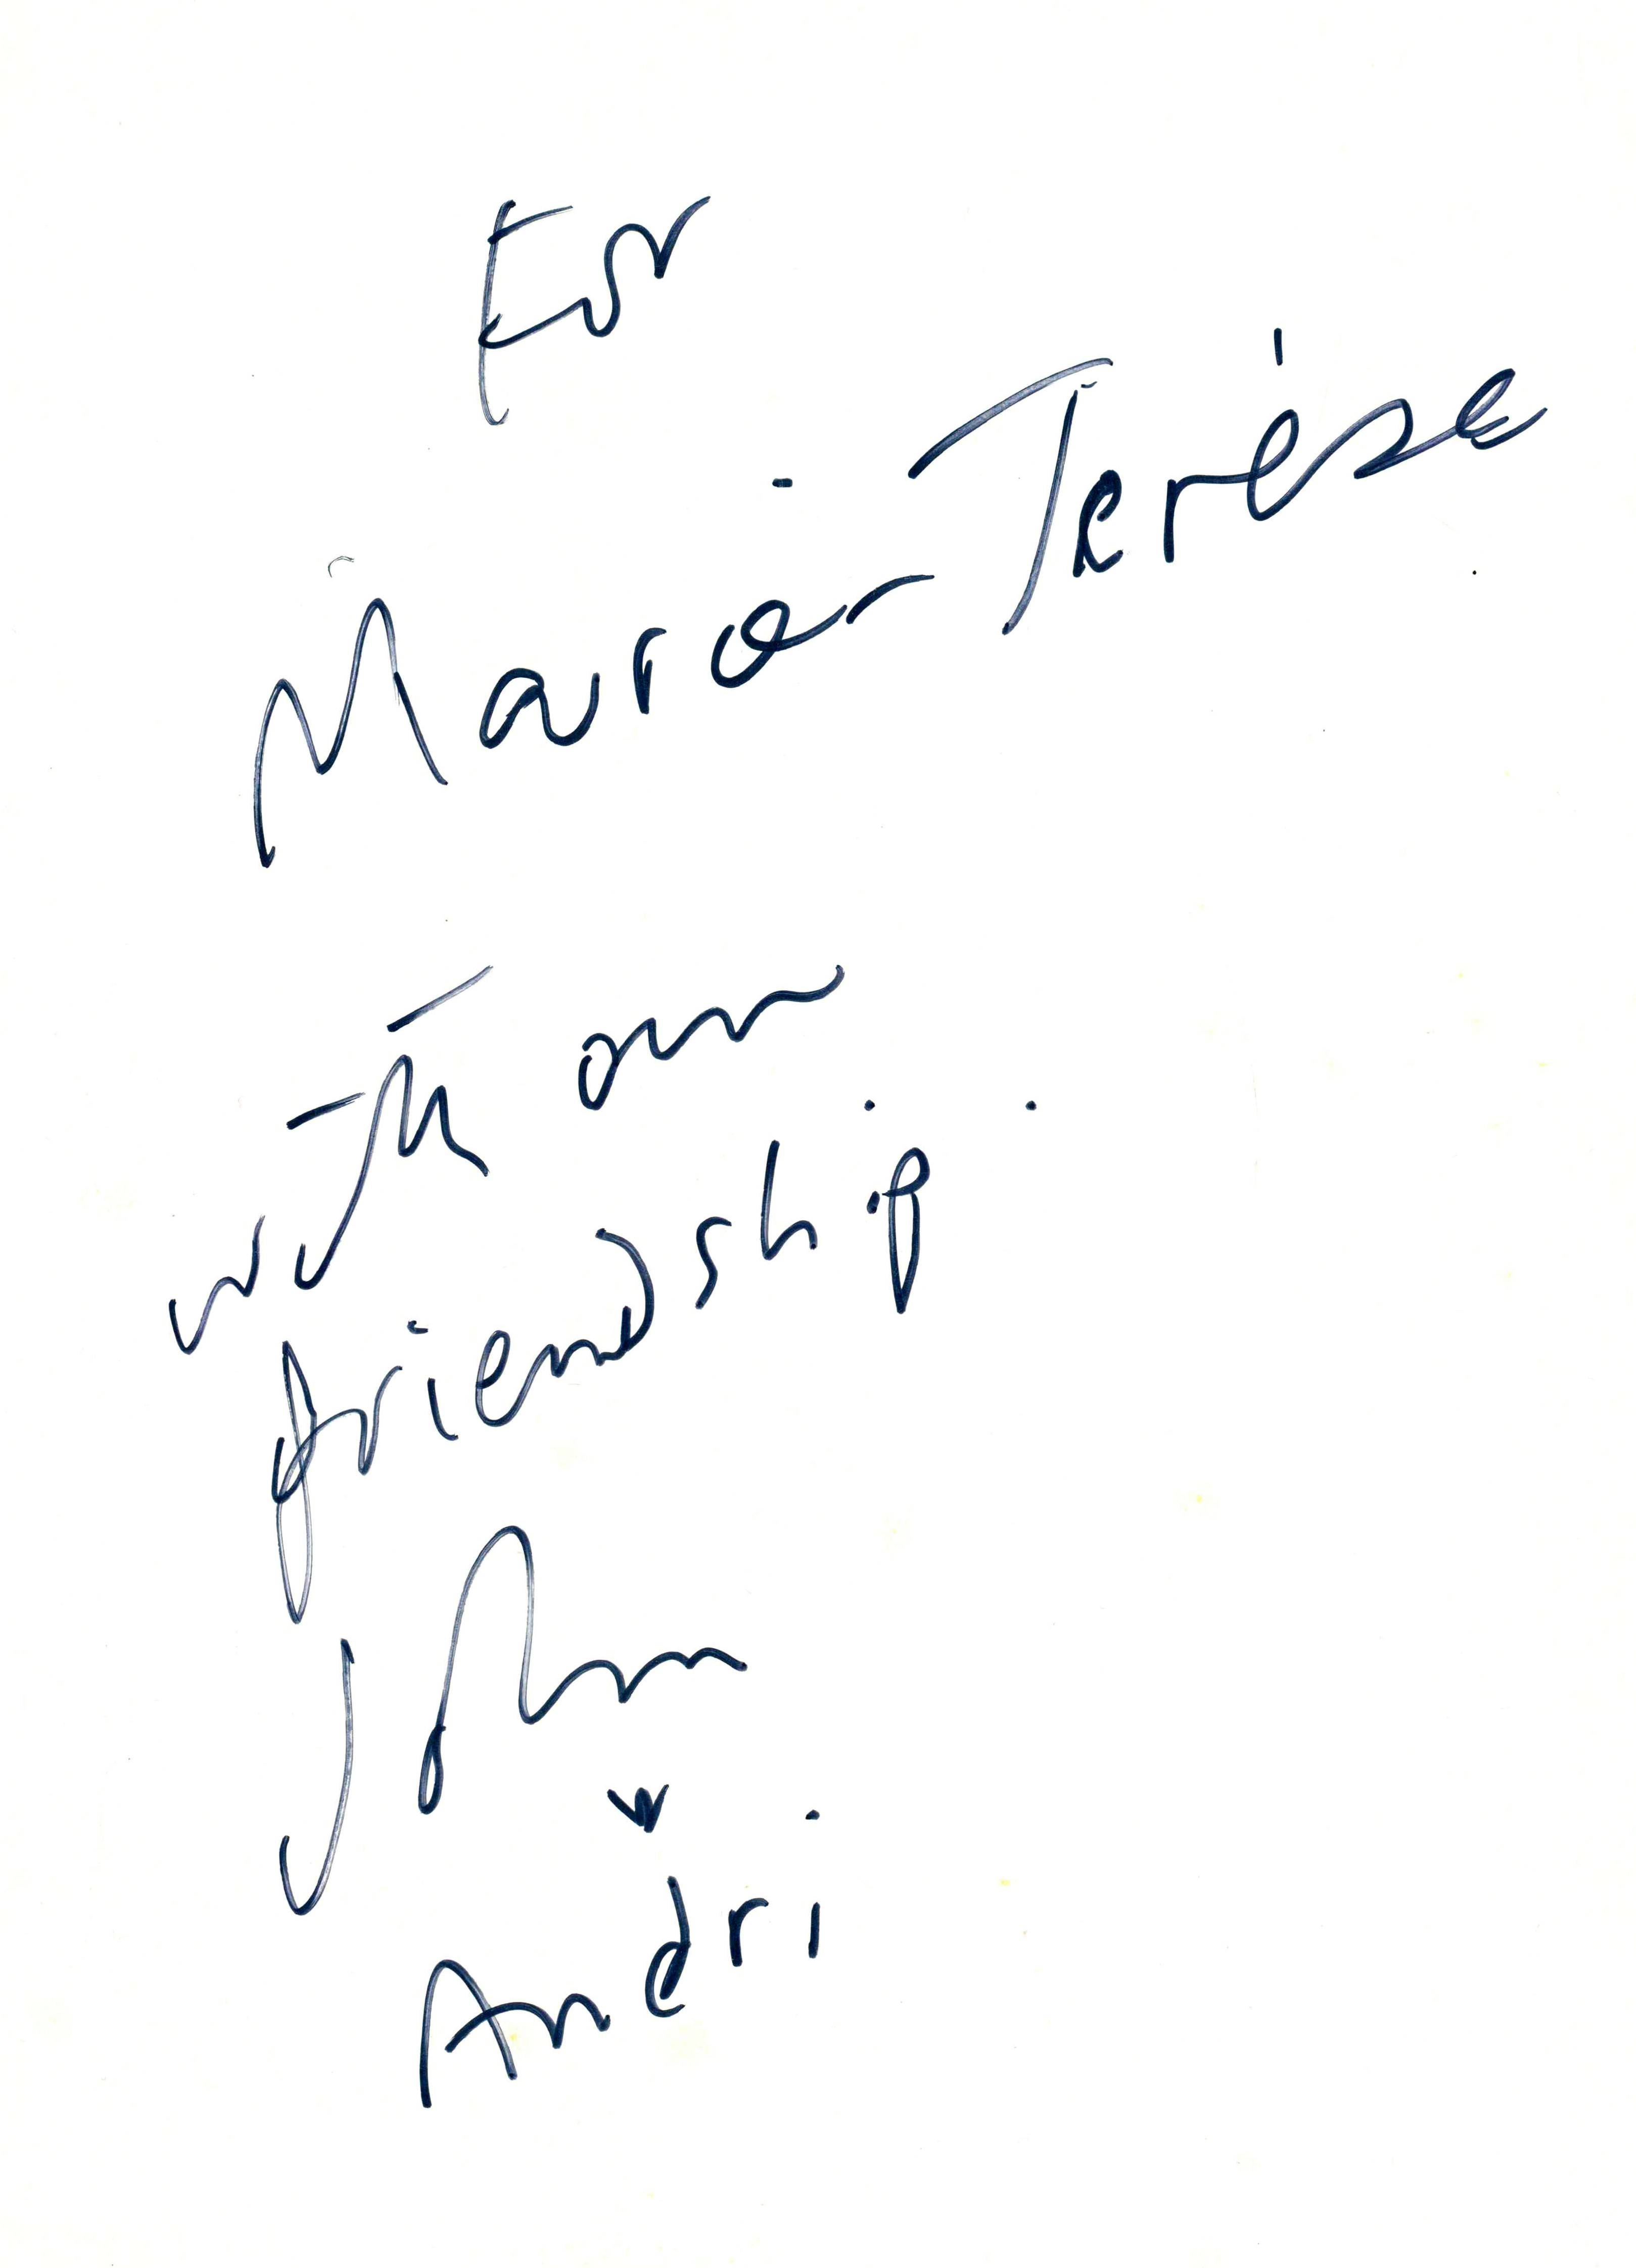 For
Maria-Terése
with our
friendship
John
Andri